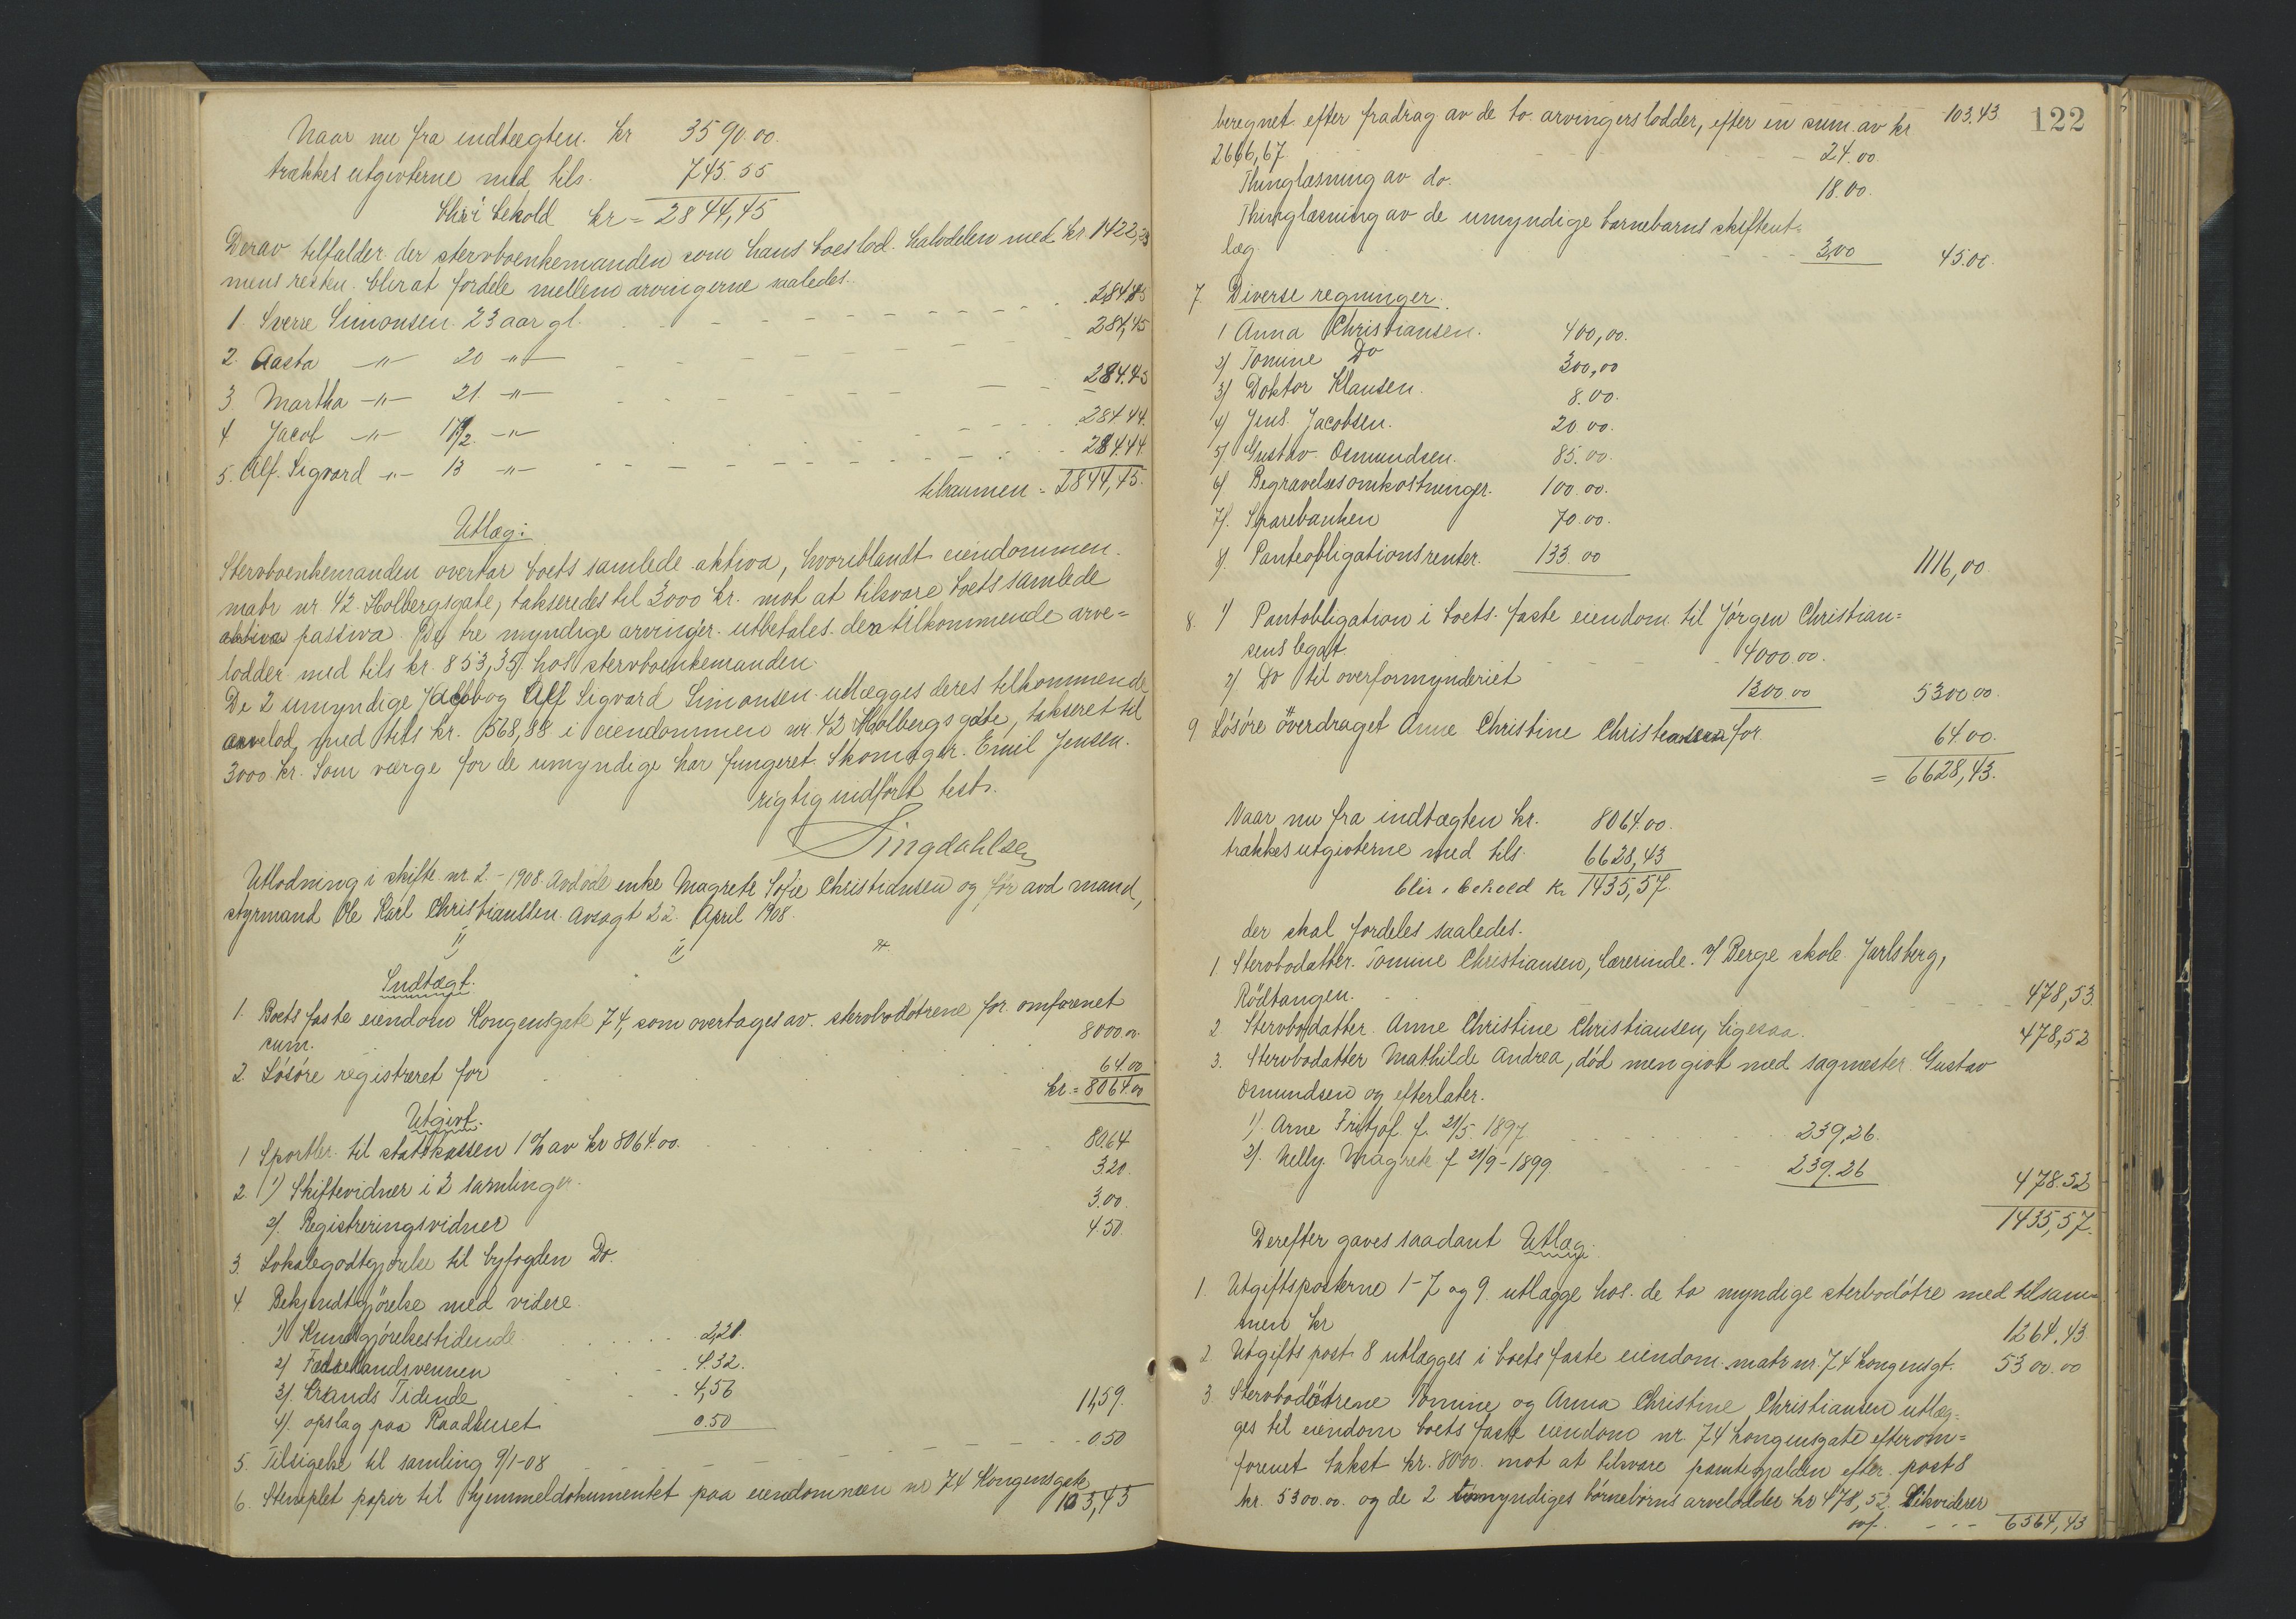 Naar nu fra indtægten kr 3590.00.
trækkes utgivterne med tils. 745.55
blir i behold kr = 2844,45
Derav tilfalder der stervboenkemanden som hans boeslod halvdelen med kr. 1422,
mens resten blir at fordele mellem arvingerne saaledes.
1. Sverre Simonsen 23 aar gl. 284,45
2. Aasta -"- 20 -"- 284,45
3 Martha -"- 21 -"- 284.45
4 Jacob -"- -"- 284.44.
5. Alf Sigvard -"- 13 -"- 284.44
tilsammen = 2844,45.
Utlæg:
Stervboenkemanden overtar boets samlede aktiva, hvoriblandt eiendommen
matr nr. 42 Holbergsgate, takseredes til 3000 kr. mot at tilsvare boets samlede
aktiva passiva. De tre myndige arvinger utbetales den tilkommende arve=
lodder med tils kr. 853,35 hos stervboenkemanden.
De 2 umyndige Jacob og Alf Sigvard Simonsen utlægges deres tilkommende
arvelod med tils kr. 568,88 i eiendommen nr 42 Holbergsgate, takseret til
3000 kr. Som værge for de umyndige har fungeret Skomager Emil Jensen.
rigtig indført test.
Tingdahlsen
Utlodning i skifte nr. 2 - 1908. Avdøde enke Magrete Sofie Christiansen og før avd mand,
styrmand Ole Karl Christiansen. Avsagt 22. April 1908.
" " "
Indtægt.
1. Boets faste eiendom Kongensgate 74, som overtages av stervbodøtrene for omforenet
sum. 8000.00
2 Løsøre registreret for 64.00
kr. = 8064.00
Utgivt.
1 Sportler til statskassen 1 % av kr 8064.00. 80.64
2. 1) Skiftevidner i 2 samlinger 3.20.
2). Registreringsvidner 3.00.
3. Lokalegodtgjørelse til byfogden Do. 4.50.
4. Bekjendtgjørelse med videre
1) Kundgjørelsestidende 2,21.
2) Fædrelandsvennen 4.32.
3). Krsands Tidende 4,56
4). opslag paa Raadhuset 0.50 11,59.
5. Tilsigelse til samling 9/1-08 0.50
6. Stemplet papir til hjemmeldokumentet paa eiendommen nr 74 Kongensgate
103,43
122
beregnet efter fradrag av de to arvingers lodder, efter en sum av kr 103.43
2666,67. 24.00.
Thinglæsning av do. 18.00.
Thinglæsning av de umyndige barnebarns skifteut=
læg 3,00 45.00.
7. Diverse regninger.
1 Anna Christiansen. 400,00.
2) Tomine Do 300,00
3) Doktor Klausen. 8.00.
4) Jens Jacobsen. 20 00.
5) Gustav Osmundsen. 85.00.
6). Begravelsesomkostninger. 100.00.
7). Sparebanken 70.00.
8). Panteobligationsrenter. 133.00 1116,00
8. 1) Pantobligation i boets faste eiendom til Jørgen Christian=
sens legat. 4000.00.
2) Do til overformynderiet 1300 00 5300.00.
9 Løsøre överdraget Anne Christine Christiansen for 64.00.
= 6628,43.
Naar nu fra indtægten kr. 8064.00.
trækkes utgivterne med tils. 6628,43
blir i behold kr 1435,57.
der skal fordeles saaledes.
1. Stervbodatter Tomine Christiansen, lærerinde Berge skole Jarlsberg,
Rødtangen. 478,53.
2 Stervbodatter Anne Christine Christiansen, ligesaa. 478,52
3. Stervbodatter Mathilde Andrea, død men givt med sagmester Gustav
Osmundsen og efterlater.
1). Arne Fritjof f. 21/5 1897 239,26.
2). Nelly Magrete f 21/9-1899. 239.26
478.52
1435,57.
Derefter gaves saadant Utlæg.
1. Utgiftsposterne 1-7 og 9 utlægge hos de to myndige sterbodøtre med tilsam=
men kr 1264,43.
2. Utgifts post 8 utlægges i boets faste eiendom matr nr. 74 Kongensgt. 5300.00
3. Stervbodøtrene Tomine og Anna Christine Christiansen utlæg=
ges til eiendom boets faste eiendom nr. 74 Kongensgate efter om=
forenet takst kr. 8000. mot at tilsvare pantegjælden efter post 8
kr. 5300.00. og de 2 umyndiges børnebørns arvelodder kr 478,52. Likviderer
ovf. 6564,43